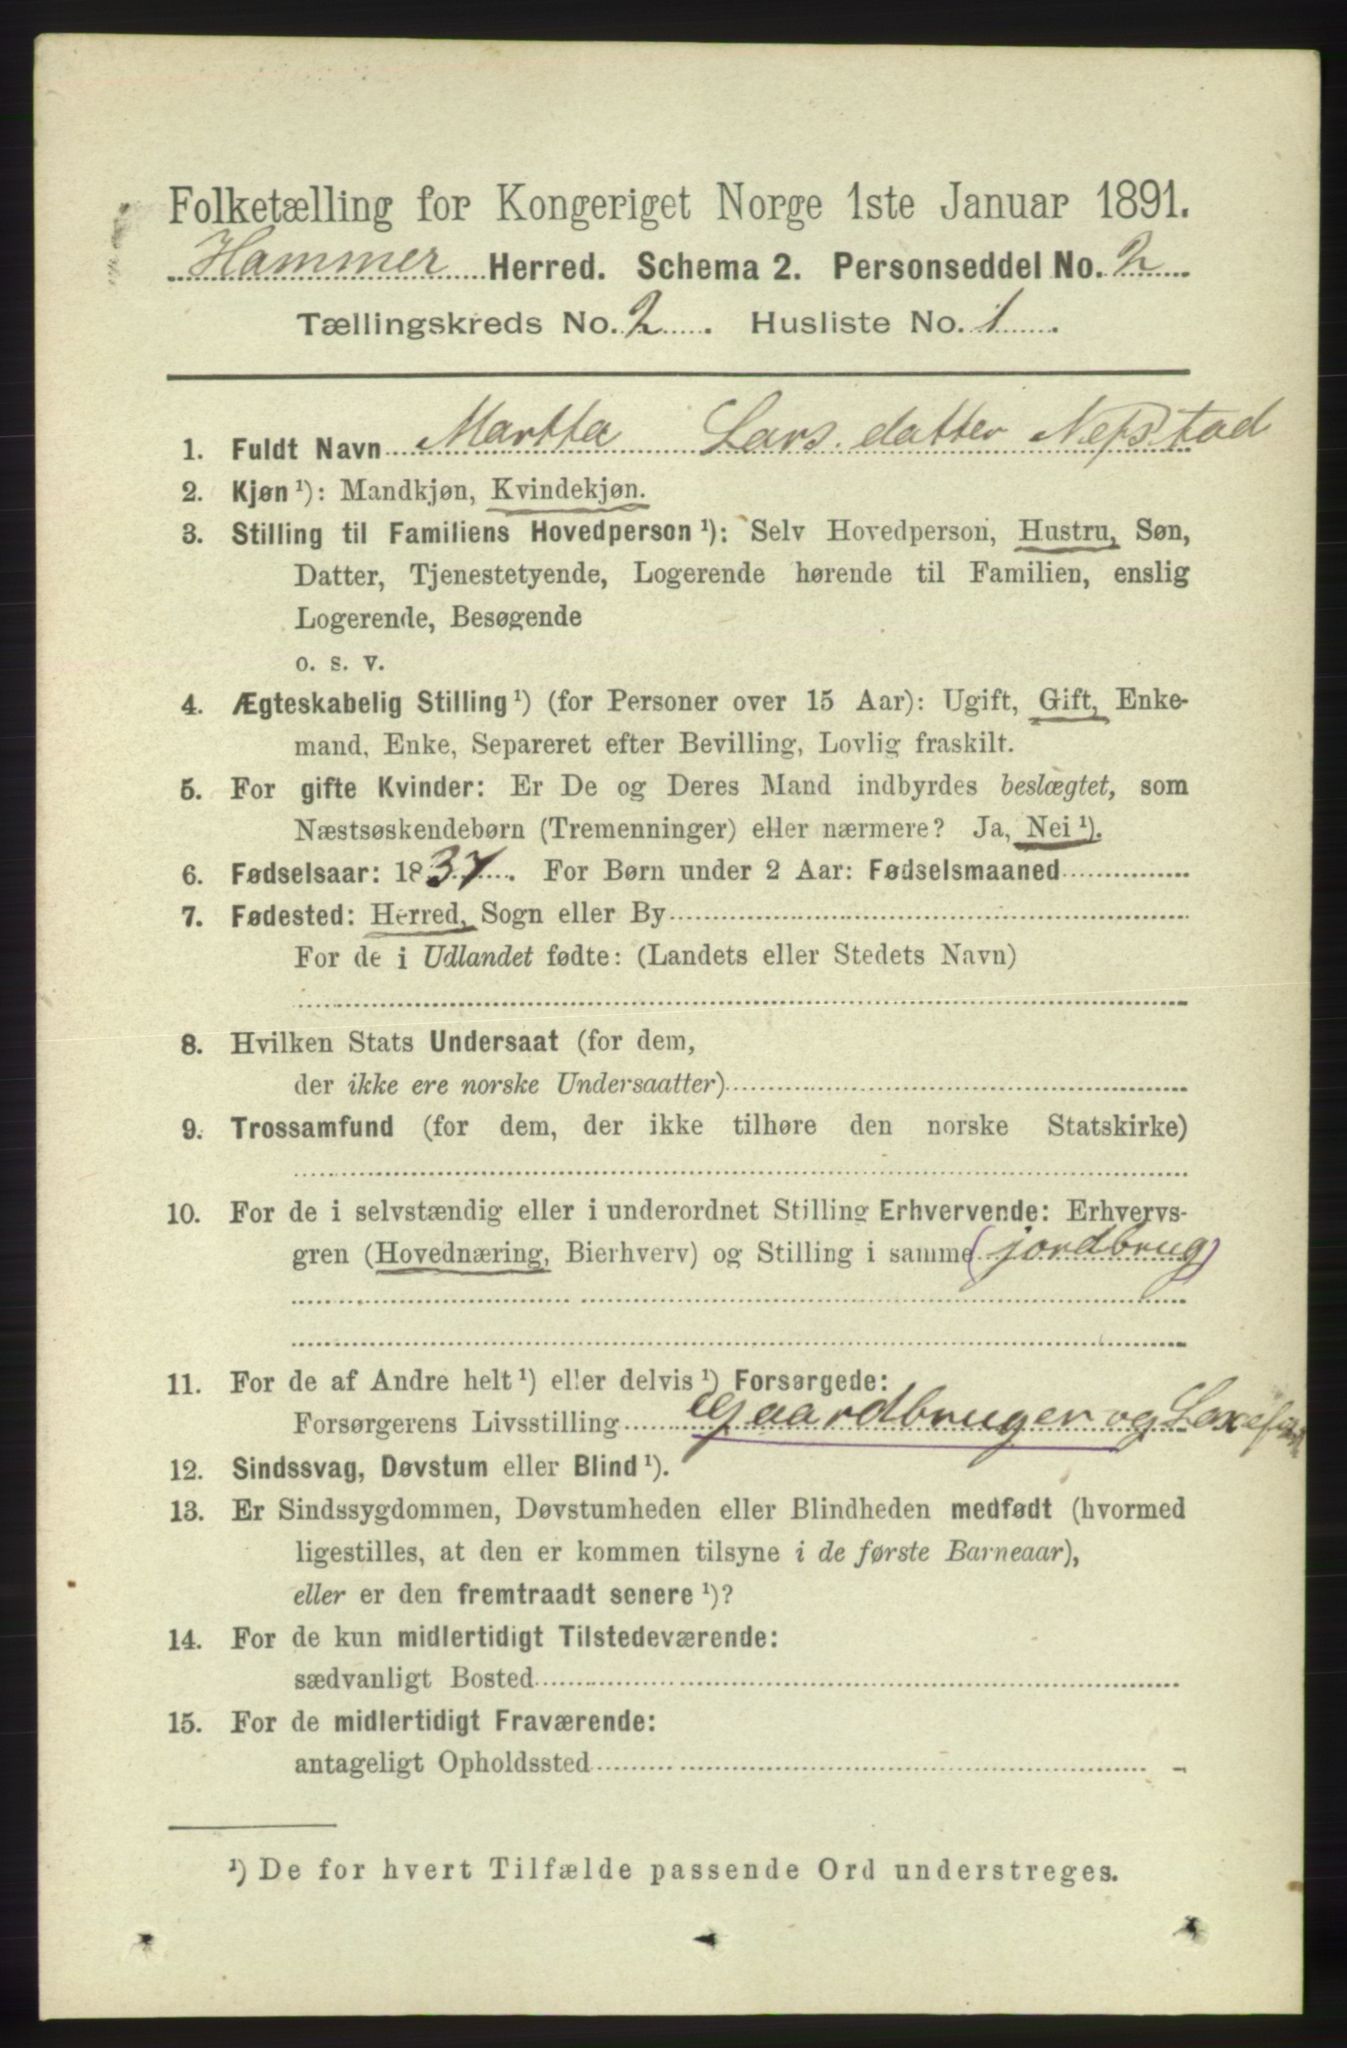 Folketælling for Kongeriget Norge 1ste Januar 1891.
Hammer Herred. Schema 2. Personseddel No. 2
Tællingskreds No. 2. Husliste No. 1.
1. Fuldt Navn Martta Lars datter Nepstad
2. Kjøn ¹): Mandkjøn, Kvindekjøn.
3. Stilling til Familiens Hovedperson ¹): Selv Hovedperson, Hustru, Søn,
Datter, Tjenestetyende, Logerende hørende til Familien, enslig
Logerende, Besøgende
o. s. v.
4. Ægteskabelig Stilling ¹) (for Personer over 15 Aar): Ugift, Gift, Enke-
mand, Enke, Separeret efter Bevilling, Lovlig fraskilt.
5. For gifte Kvinder: Er De og Deres Mand indbyrdes beslægtet, som
Næstsøskendebørn (Tremenninger) eller nærmere? Ja, Nei ¹).
6. Fødselsaar: 1837. For Børn under 2 Aar: Fødselsmaaned
7. Fødested: Herred, Sogn eller By
For de i Udlandet fødte: (Landets eller Stedets Navn)
8. Hvilken Stats Undersaat (for dem,
der ikke ere norske Undersaatter)
9. Trossamfund (for dem, der ikke tilhøre den norske Statskirke)
10. For de i selvstændig eller i underordnet Stilling Erhvervende: Erhvervs-
gren (Hovednæring, Bierhverv) og Stilling i samme (jordbrug)
11. For de af Andre helt ¹) eller delvis ¹) Forsørgede:
Forsørgerens Livsstilling Gaardbruger og
12. Sindssvag, Døvstum eller Blind ¹).
13. Er Sindssygdommen, Døvstumheden eller Blindheden medfødt (hvormed
ligestilles, at den er kommen tilsyne i de første Barneaar),
eller er den fremtraadt senere ¹)?
14. For de kun midlertidigt Tilstedeværende:
sædvanligt Bosted
15. For de midlertidigt Fraværende:
antageligt Opholdssted
¹) De for hvert Tilfælde passende Ord understreges.